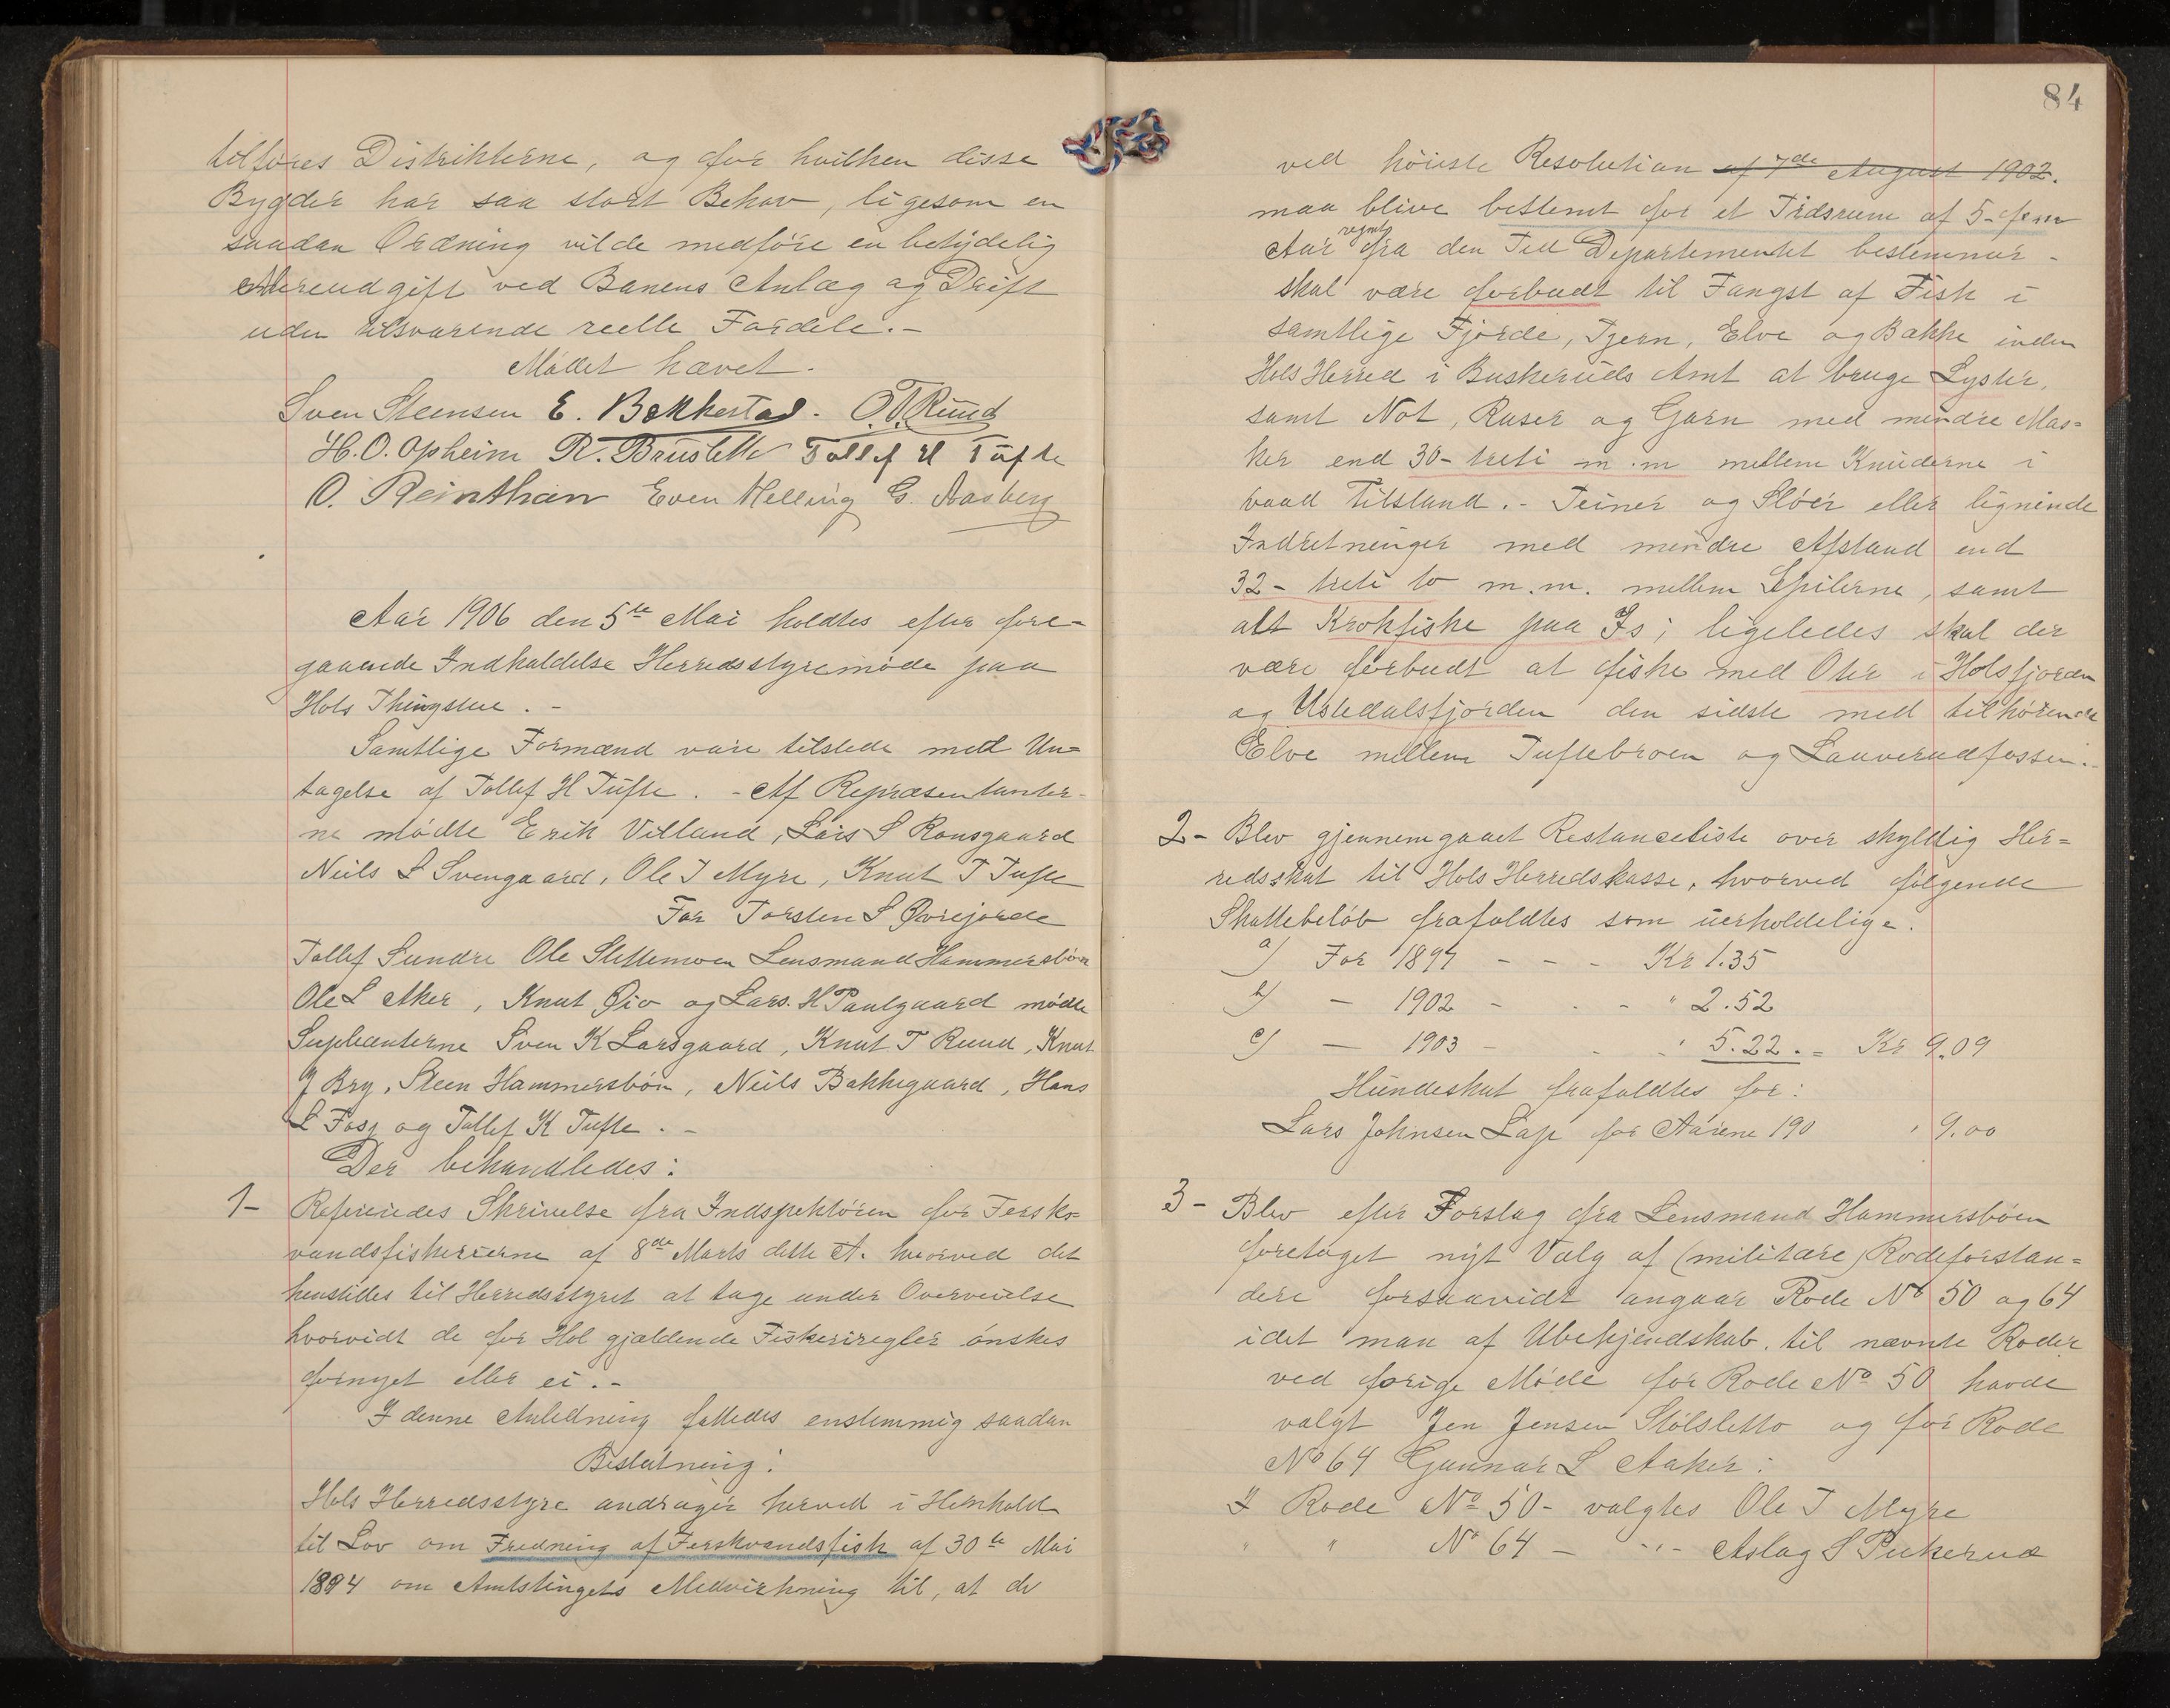 tilføres Distrikterne, og for hvilken disse
Bygder har saa stort Behov, ligesom en
saadan Ordning vilde medføre en betydelig
Merudgift ved Banens Anlæg og Drift
uden tilsvarende reelle Fordele.-
Mødet hævet.
Sven Steensen E. Bakkestad. O.T. Ruud
H.O. Opheim R. Bruslette Tollef H Tufte
O. Reinthon Even Helling G. Aasberg
Aar 1906 den 5te Mai holdtes efter fore-
gaaende Indkaldelse Herredsstyremøde paa
Hols Thingstue.-
Samtlige Formænd vare tilstede med Un-
tagelse af Tollef H Tufte.- Af Repræsentanter-
ne mødte Erik Villand, Lars S Ronsgaard
Neils L Svengaard, Ole T Myre, Knut T Tufte
For Torsten S Øvrejorde
Tollef Sundre Ole Slettemoen Lensmand Hammersbøen
Ole L Aker, Knut Øio og Lars H Paulgaard mødte
Supleanterne Sven K Larsgaard, Knut T Ruud, Knut
J Bry, Steen Hammersbøn, Neils Bakkegaard, Hans
L Fosz og Tollef K Tufte.-
Der behandledes:
1- Refereredes Skrivelse fra Indspektøren for Fersk-
vandsfiskerierne af 8de Marts dette A. hvorved det
henstilles til Herredsstyret at tage under Overveielse
hvorvidt de for Hol gjældende Fiskeriregler ønskes
fornyet eller ei.-
I denne Anledning fattedes enstemmig saadan
Beslutning:
Hols Herredsstyre andrager herved i Henhold
til Lov om Fredning af Ferskvandsfisk af 30te Mai
1894 om Amtstingets Medvirkning til, at de
84
ved høieste Resolution af 7de August 1902.
maa blive bestemt for et Tidsrum af 5-fem
Aar regnet fra den Tid Departementet bestemmer -
skal være forbudt til Fangst af Fisk i
samtlige Fjorde, Tjern, Elve og Bække inden
Hols Herred i Buskeruds Amt at bruge Lyster,
samt Not, Ruser og Garn med mindre Mas-
ker end 30- treti m.m mellem Knuderne i
vaad Tilstand.- Teiner og Sløer eller lignende
Indretninger med mindre Afstand end
32- treti to m.m. mellem Spilerne, samt
alt Krokfiske paa Is; ligeledes skal der
være forbudt at fiske med Oter i Holsfjorden
og Ustedalsfjorden den sidste med tilhørende
Elve mellem Tuftebroen og Lauverudfossen.-
2- Blev gjennemgaaet Restanceliste over skyldig Her-
redsskat til Hols Herredskasse, hvorved følgende
Skattebeløb frafaldtes som uerholdelige.
a) For 1897 - - - Kr 1.35
b) - 1902 - - - " 2.52
c) - 1903 - - " 5.22.= Kr 9.09
Hundeskat frafaldtes for:
Lars Johnsen Lap for Aarene 190 " 9.00
3- Blev efter Forslag fra Lensmand Hammersbøen
foretaget nyt Valg af (militære) Rodeforstan-
dere forsaavidt angaar Rode No 50 og 64
idet man af Ubekjendskab til nævnte Roder
ved forige Møde for Rode No 50 havde
valgt Jen Jensen Stølsletto og for Rode
No 64 Gunnar L Aaker:
I Rode No 50- valgtes Ole T Myre
" " No 64 - -"- Aslag S Pukerud